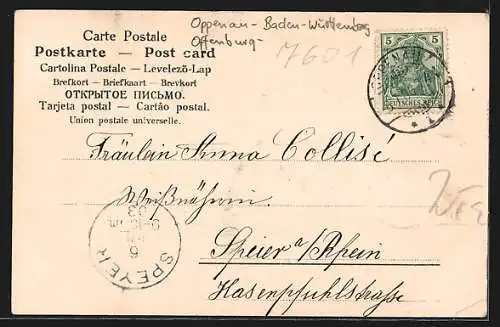 Carte Postale
Postkarte — Post card
Cartolina Postale — Levelező-Lap
Brefkort — Briefkaart — Brevkort
ОТКРЫТОЕ ПИСЬМО.
Tarjeta postal — Cartão postal.
Union postale universelle.
Oppenau - Baden-Württemberg
Offenburg -
7601
5 5
DEUTSCHES REICH
OPPENAU
Fräulein Anna Collisé
Weißnäherin.
Speier a/Rhein
Hasenpfuhlstrasse
SPEYER
6